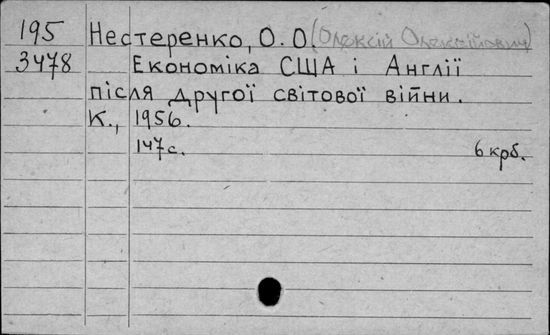 195 Нестеренко, О. О. (Олексій Олексійович)
3478 Економіка США і Англії
після другої світової війни.
К., 1956.
147 с. 6 крб.